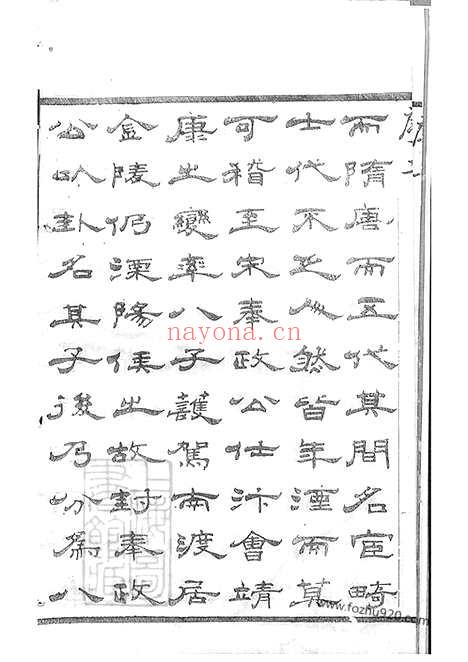 而隋唐而五代其間名宦畸
士代不乏人然皆年湮而莫
可稽至宋奉政公仕汴會靖
康之變率八子護駕南渡居
金陵仍溧陽侯之故封奉政
公以卦名其子後乃分為八
nayona.cn
www.fozhu920.com